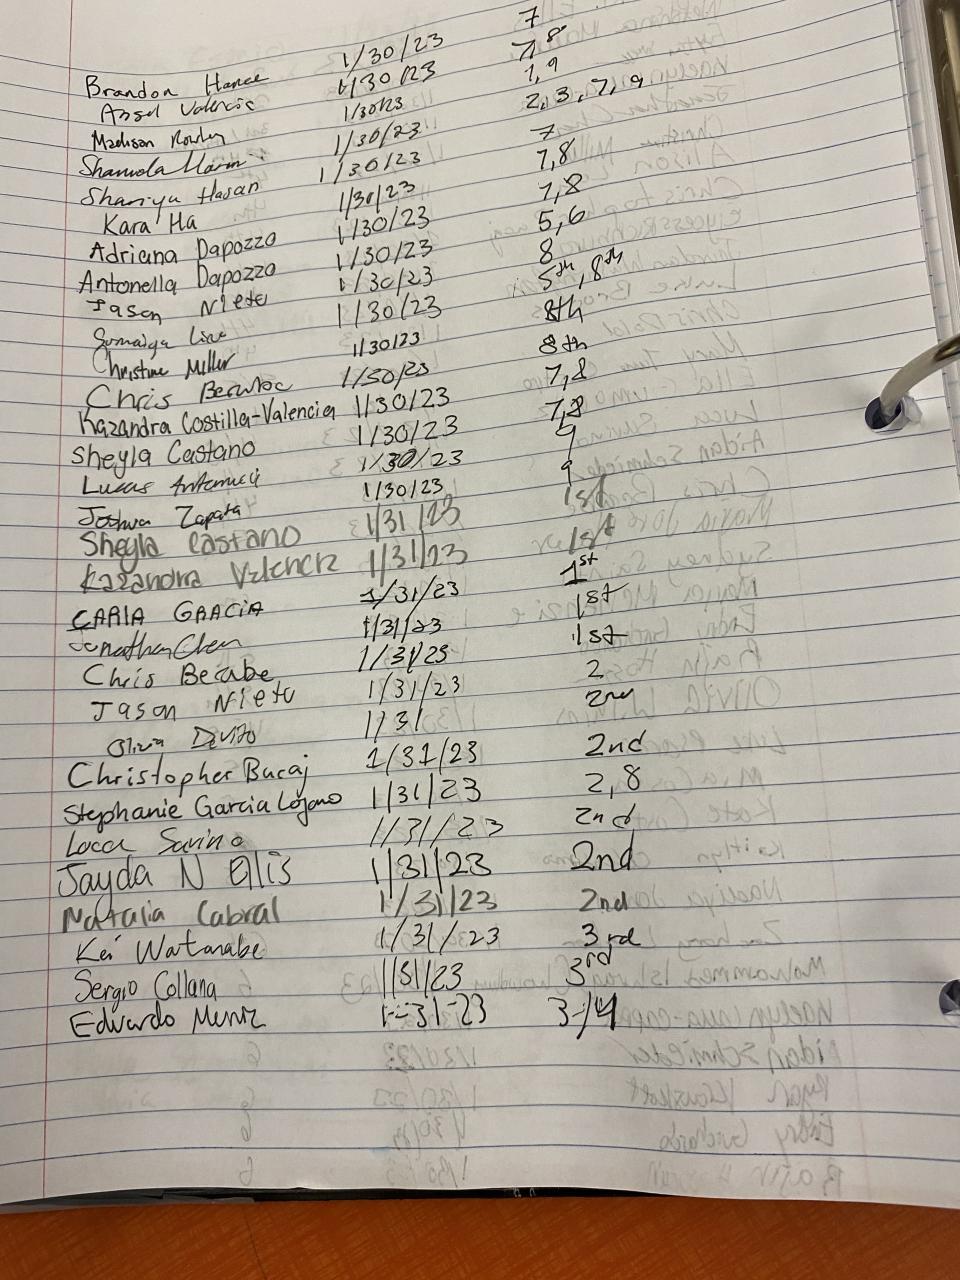 Brandon Hance 1/30/23 7
Ansel Valencia 1/30/23 7,8
Madison Rowley 1/30/23 7,9
1/30/23 2,3,7,9
Shaniya Hasan 1/30/23 7
Kara Ha 1/30/23 7,8
Adriana Dapozzo 1/30/23 7,8
Antonella Dapozzo 1/30/23 5,6
Jason Nieto 1/30/23 8
Sumaiya 1/30/23 5th,8th
Christine Miller 1/30/23 8th
Chris 1/30/23 8th
Kazandra Costilla-Valencia 1/30/23 7,8
Sheyla Castano 1/30/23 7,8
Lucas 1/30/23 9
Joshua Zapata 1/30/23 9
Sheyla Castano 1/31/23 1st
Kazandra 1/31/23 1st
1/31/23 1st
Jonathan Chen 1/31/23 1st
Chris 1/31/23 1st
Jason Nieto 1/31/23 2
Olivia Devito 1/31
Christopher Bucaj 1/31/23 2nd
Stephanie Garcia Lozano 1/31/23 2,8
Luca Savino 1/31/23 2nd
Jayda N Ellis 1/31/23 2nd
Natalia Cabral 1/31/23 2nd
Kei Watanabe 1/31/23 3rd
Sergio Collana 1/31/23 3rd
Edvardo Muniz 1-31-23 3-/4